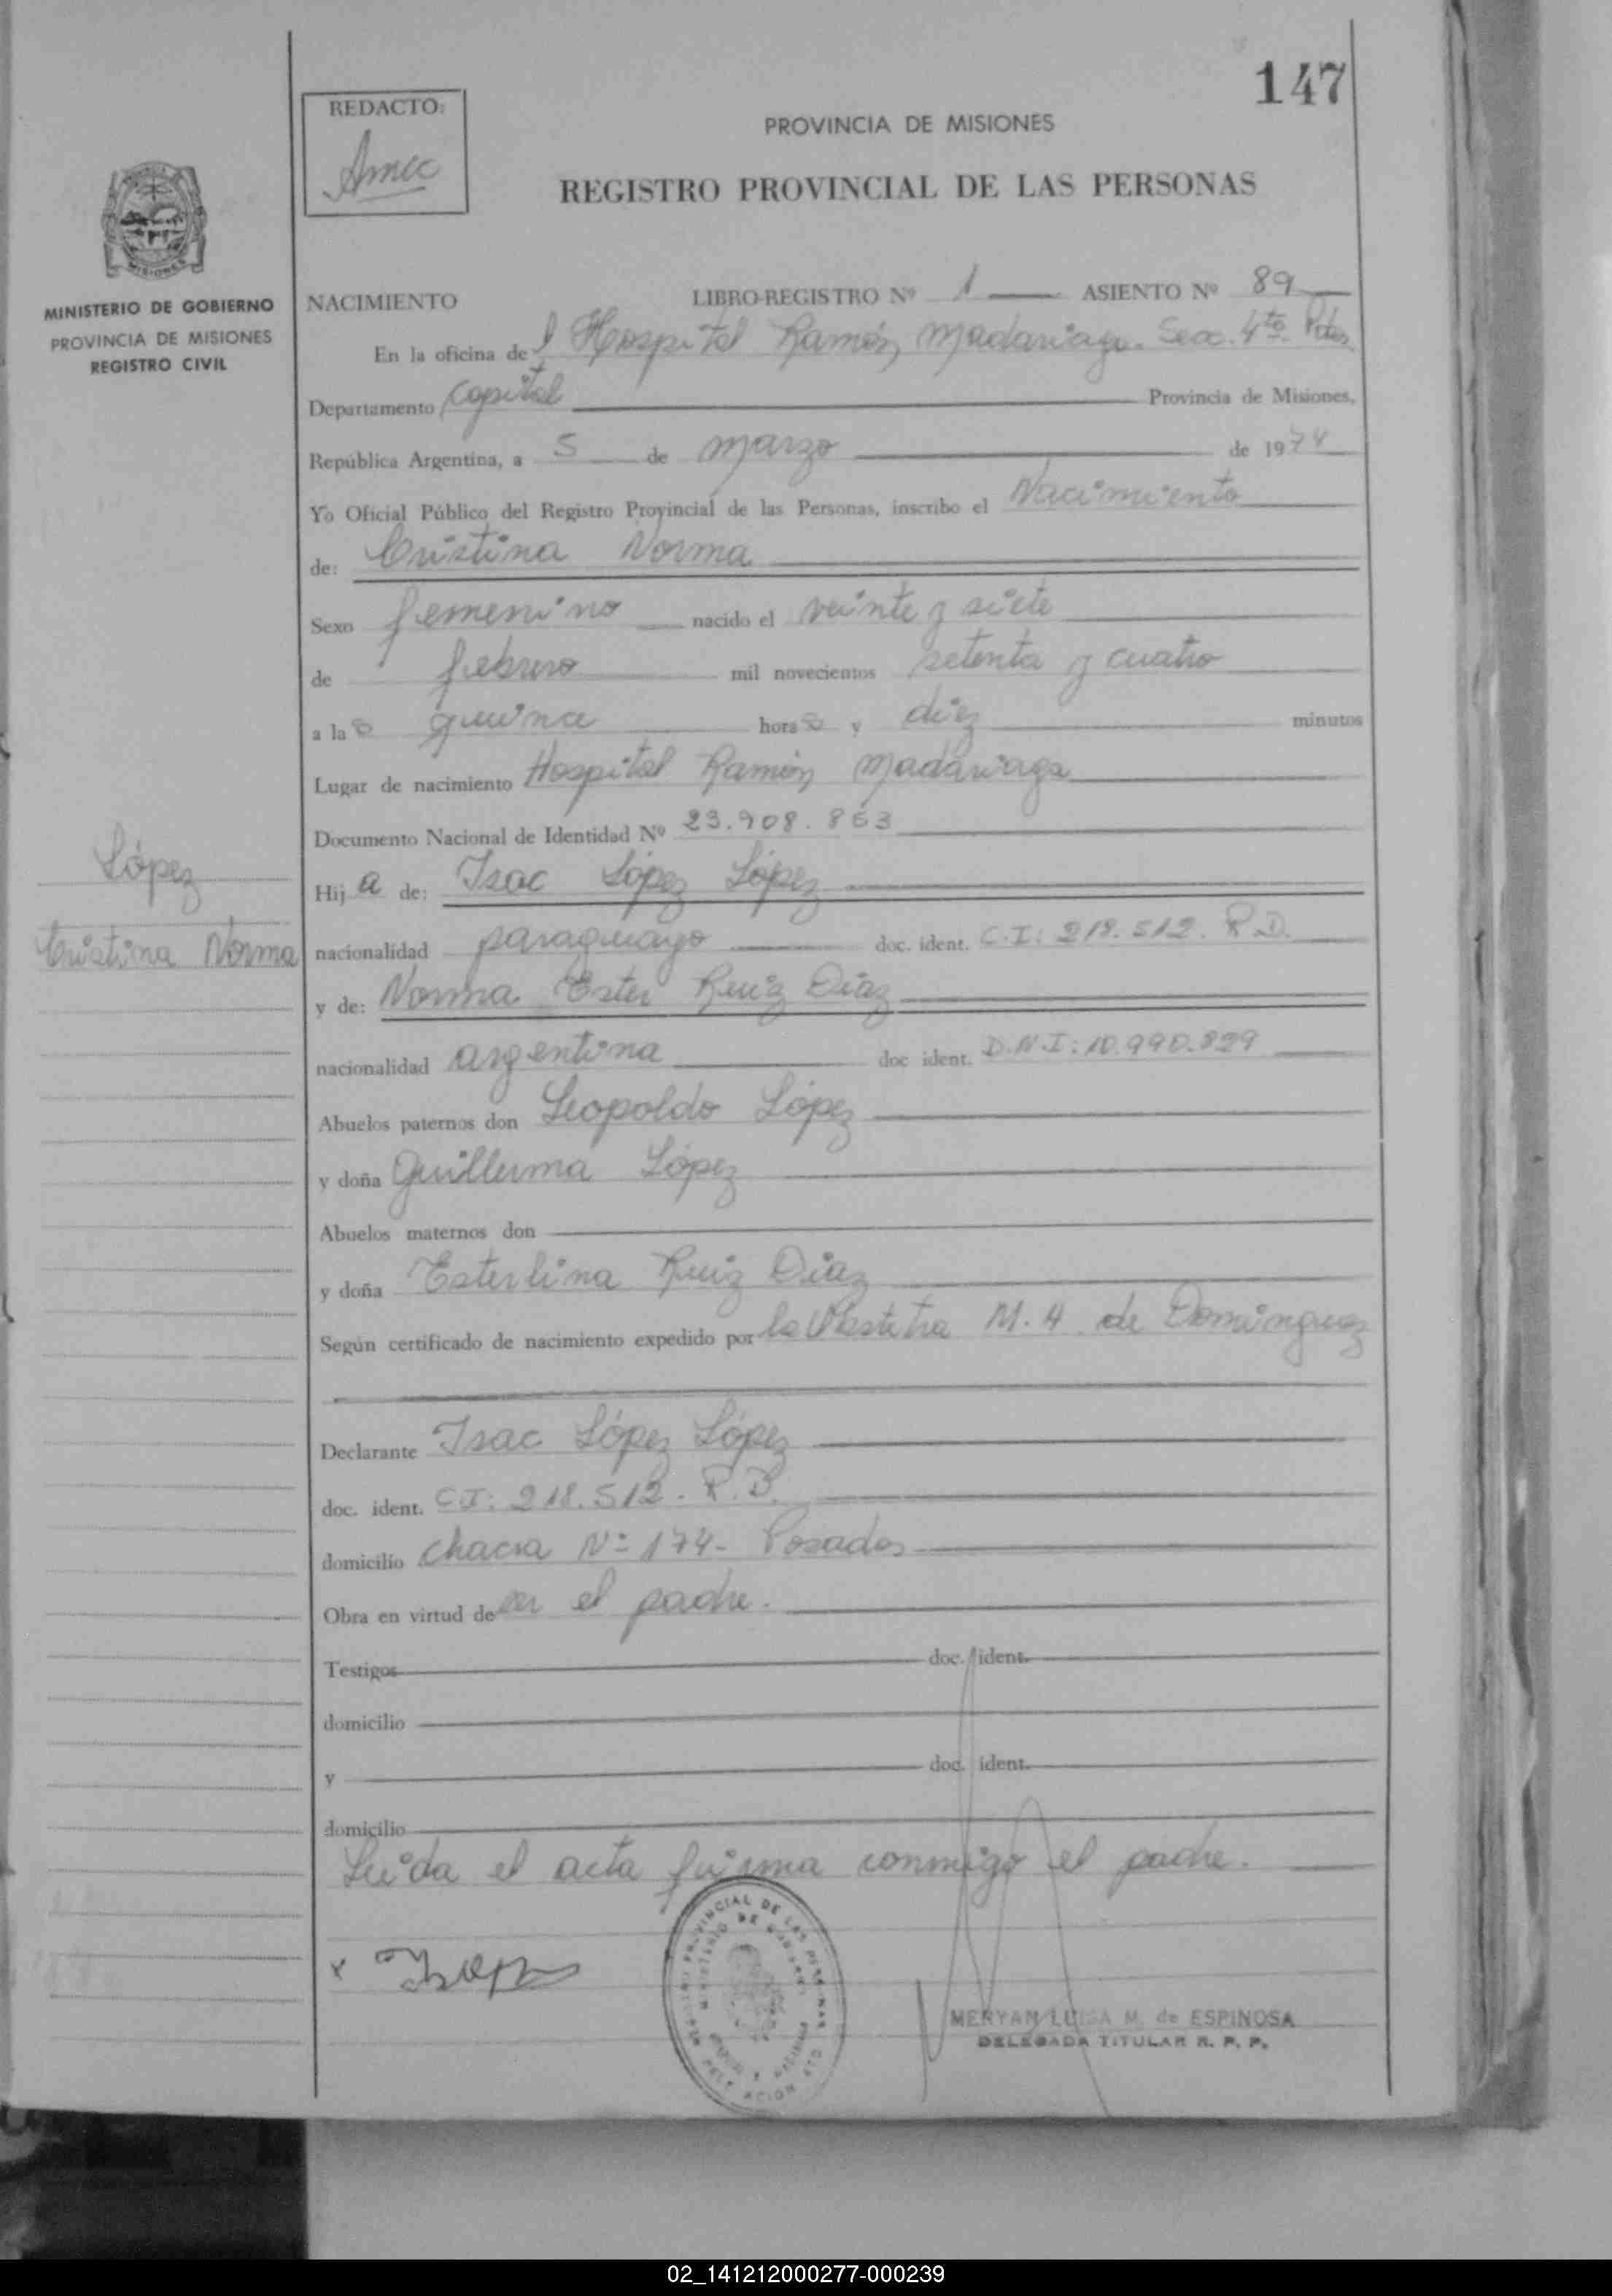 147
REDACTO:
PROVINCIA DE MISIONES
REGISTRO PROVINCIAL DE LAS PERSONAS
MISIONES
MINISTERIO DE GOBIERNO
PROVINCIA DE MISIONES
REGISTRO CIVIL
NACIMIENTO LIBRO-REGISTRO Nº 1 ASIENTO Nº 89
En la oficina del Hospital Ramón Madariaga. Secc. 4ta Pdas
Departamento Capital Provincia de Misiones,
República Argentina, a 5 de marzo de 1974
Yo Oficial Público del Registro Provincial de las Personas, inscribo el Nacimiento
de: Cristina Norma
Sexo femenino nacido el veinte y siete
de febrero mil novecientos setenta y cuatro
a las quince horas y diez minutos
Lugar de nacimiento Hospital Ramón Madariaga
Documento Nacional de Identidad Nº 23.908.863
Hija de: Isac López López
López
Cristina Norma
nacionalidad paraguayo doc. ident. C.I: 218.512. R.D.
y de: Norma Ester Ruiz Díaz
nacionalidad argentina doc ident. D.N.I: 10.990.829
Abuelos paternos don Leopoldo López
y doña Guillerma López
Abuelos maternos don
y doña Esterlina Ruiz Díaz
Según certificado de nacimiento expedido por la M. H. de Dominguez
Declarante Isac López López
doc. ident. C.I: 218.512. R.D.
domicilio Chacra Nº 174- Posadas
Obra en virtud de ser el padre.
Testigos doc. ident.
domicilio
y doc. ident.
domicilio
Leida el acta firma conmigo el padre.
MERYAN LUISA M. de ESPINOSA
DELEGADA TITULAR R. P. P.
02_141212000277-000239